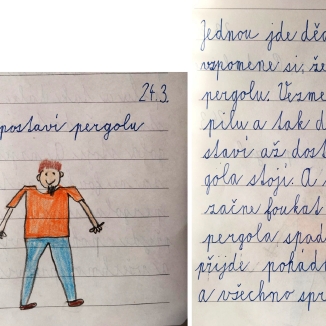 24.3.
postaví pergolu
Jednou jde děd
vzpomene si, že
pergolu. Vezme
pilu a tak d
staví až dost
gola stojí. A
začne foukat
pergola spad
přijde pohádk
a všechno spr